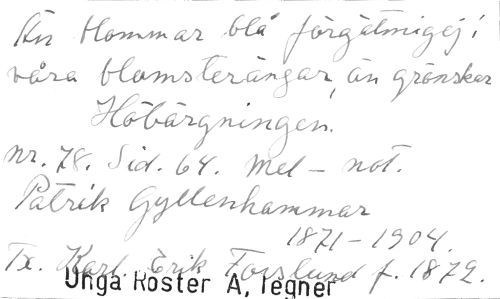 Än blommar blå förgätmigej i
våra blomsterängar, än grönskar
Höbärgningen.
nr. 78. Sid. 64. Mel - not.
Patrik Gyllenhammar
1871-1904.
Tx. Karl. Erik Forslund f. 1872.
Unga Röster A, Tegner